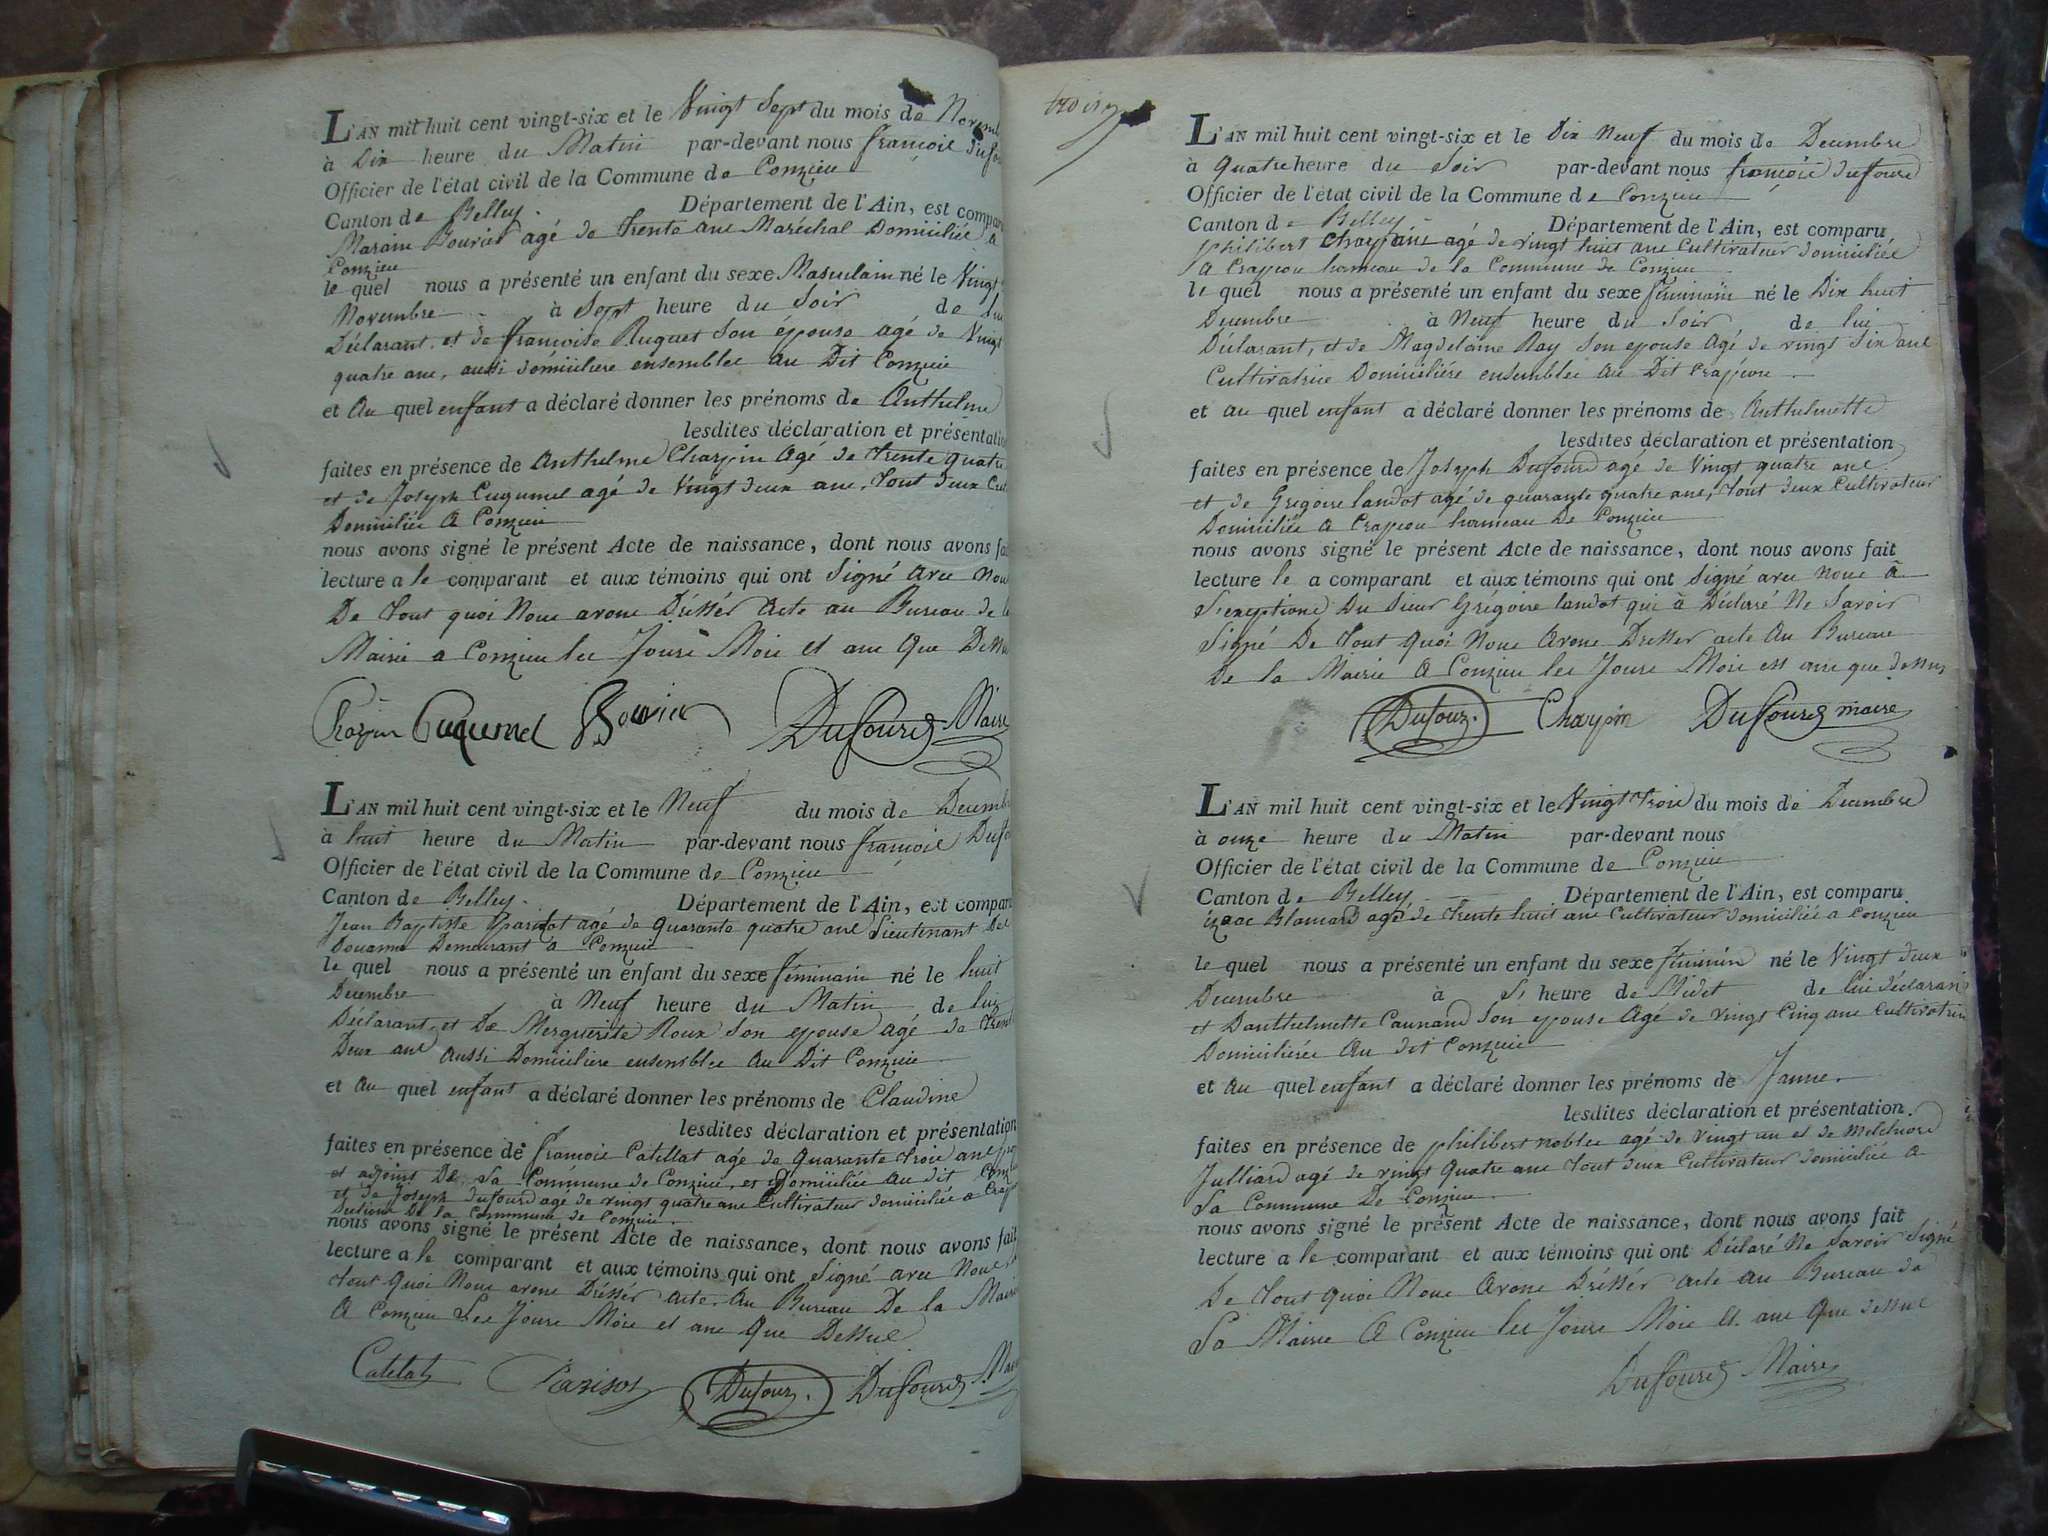 L'AN mil huit cent vingt-six et le Vingt Sept du mois de Novemb
à Dix heure du Matin par-devant nous françois Dufou
Officier de l'état civil de la Commune de Conzieu
Canton de Belley. Département de l'Ain, est compar
agé de trente ans Maréchal Domicilié a
Conzieu
le quel nous a présenté un enfant du sexe Masculain né le Vingt
Novembre à Sept heure du Soir de lui
Déclarant et de francoise Ruguet Son épouse agé de Vingt
quatre ans, aussi domiciliere ensembles au Dit Conzieu
et Au quel enfant a déclaré donner les prénoms de Anthelme
lesdites déclaration et présentatio
faites en présence de Anthelme Charpin Agé de trente quatre
et de Joseph Cuqumel agé de Vingt deux ans, tout deux Cul
Domiciliée A Conzieu
nous avons signé le présent Acte de naissance, dont nous avons fai
lecture a le comparant et aux témoins qui ont Signé avec Nou
De tout quoi Nous avons Dréssér Acte au Bureau de la
Mairie a Conzieu les Jours Mois et ans Que Dessus
Charpin Cuqumel Bouvier Dufourd Maire
L'AN mil huit cent vingt-six et le Neuf du mois de Décemb
à huit heure du Matin par-devant nous françois Dufo
Officier de l'état civil de la Commune de Conzieu
Canton de Belley. Département de l'Ain, est compar
Jean Baptiste Parizot agé de Quarante quatre ans Lieutenant Des
Douanne Demeurant à Conzieu
le quel nous a présenté un enfant du sexe féminain né le huit
Decembre à Neuf heure du Matin de lui
Déclarant, et De Merguerite Roux Son epouse agé de trent
Deux ans aussi Domiciliere ensembles Au Dit Conzieu
et Au quel enfant a déclaré donner les prénoms de Claudine
lesdites déclaration et présentation
faites en présence de françois Catillat agé de Quarante trois ans
et adjoint De La Commune de Conzieu, et Domiciliée Au dit Conzieu
et de Joseph dufourd agé de vingt quatre ans Cultivateur domiciliée a Crap
Sections De la Commune de Conzieu.
nous avons signé le présent Acte de naissance, dont nous avons fait
lecture a le comparant et aux témoins qui ont Signé avec Nous De
tout Quoi Nous avons Dréssér acte Au Bureau De la Mairie
A Conzieu Les Jours Mois et ans Que Dessus
Catelat Parisot Dufour. Dufourd Mai
L'AN mil huit cent vingt-six et le Dix Neuf du mois de Decembre
à Quatre heure du Soir par-devant nous françois dufourd
Officier de l'état civil de la Commune de Conzieu
Canton de Belley Département de l'Ain, est comparu
philibert Charpin agé de vingt huit ans Cultivateur domiciliée
a Crapeou hameau de la Commune de Conzieu
le quel nous a présenté un enfant du sexe féminain né le Dix huit
Decembre à Neuf heure du Soir de lui
Déclarant, et de Magdelaine Ray Son epouse Agé de vingt Six ans
Cultivatrice Domiciliére ensembles Au Dit Crapeou
et au quel enfant a déclaré donner les prénoms de Anthelmette
lesdites déclaration et présentation
faites en présence de Joseph Dufourd agé de Vingt quatre ans
et de Grégoire landot agé de quarante quatre ans, tout deux Cultivateur
Domiciliée A Crapeou hameau De Conzieu
nous avons signé le présent Acte de naissance, dont nous avons fait
lecture le a comparant et aux témoins qui ont Signé avec nous à
l'exeptions Du Sieur Grégoire landot qui à Déclaré Ne Savoir
Signé De tout Quoi Nous Avons Dresser acte Au Bureau
De la Mairie A Conzieu les Jours Mois est ans que dessus
Dufour. Charpin Dufourd maire
L'AN mil huit cent vingt-six et le Vingt trois du mois de Decembre
à onze heure du Matin par-devant nous
Officier de l'état civil de la Commune de Conzieu
Canton de Belley. Département de l'Ain, est comparu
izaac Blamard agé de trente huit ans Cultivateur domiciliée a Conzieu
le quel nous a présenté un enfant du sexe féminin né le Vingt deux
Decembre à heure de Midet de lui déclaran
et Danthelmette Caunand Son epouse Agé de vingt Cinq ans Cultivatrice
Domiciliérée Au dit Conzieu
et au quel enfant a déclaré donner les prénoms de Janne.
lesdites déclaration et présentation.
faites en présence de philibert nobles agé de Vingt un et de Melchiord
Julliard agé de vingt Quatre ans tout deux Cultivateur domiciliée A
La Commune De Conzieu.
nous avons signé le présent Acte de naissance, dont nous avons fait
lecture a le comparant et aux témoins qui ont Déclaré Ne Savoir Signé
De tout quoi Nous Avons Dréssér acte au Bureau de
La Mairie A Conzieu les Jours Mois Et ans Que dessus
Dufourd Maire